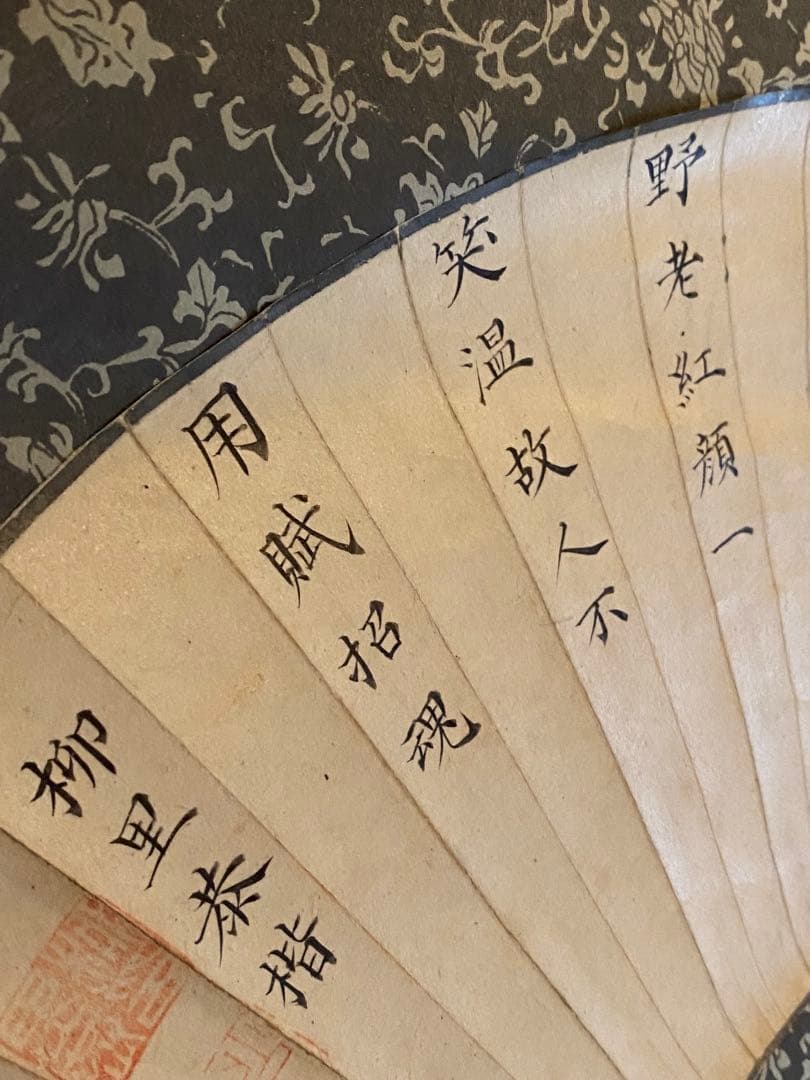 野老紅顔一
笑温故人不
用賦招魂
柳里恭楷